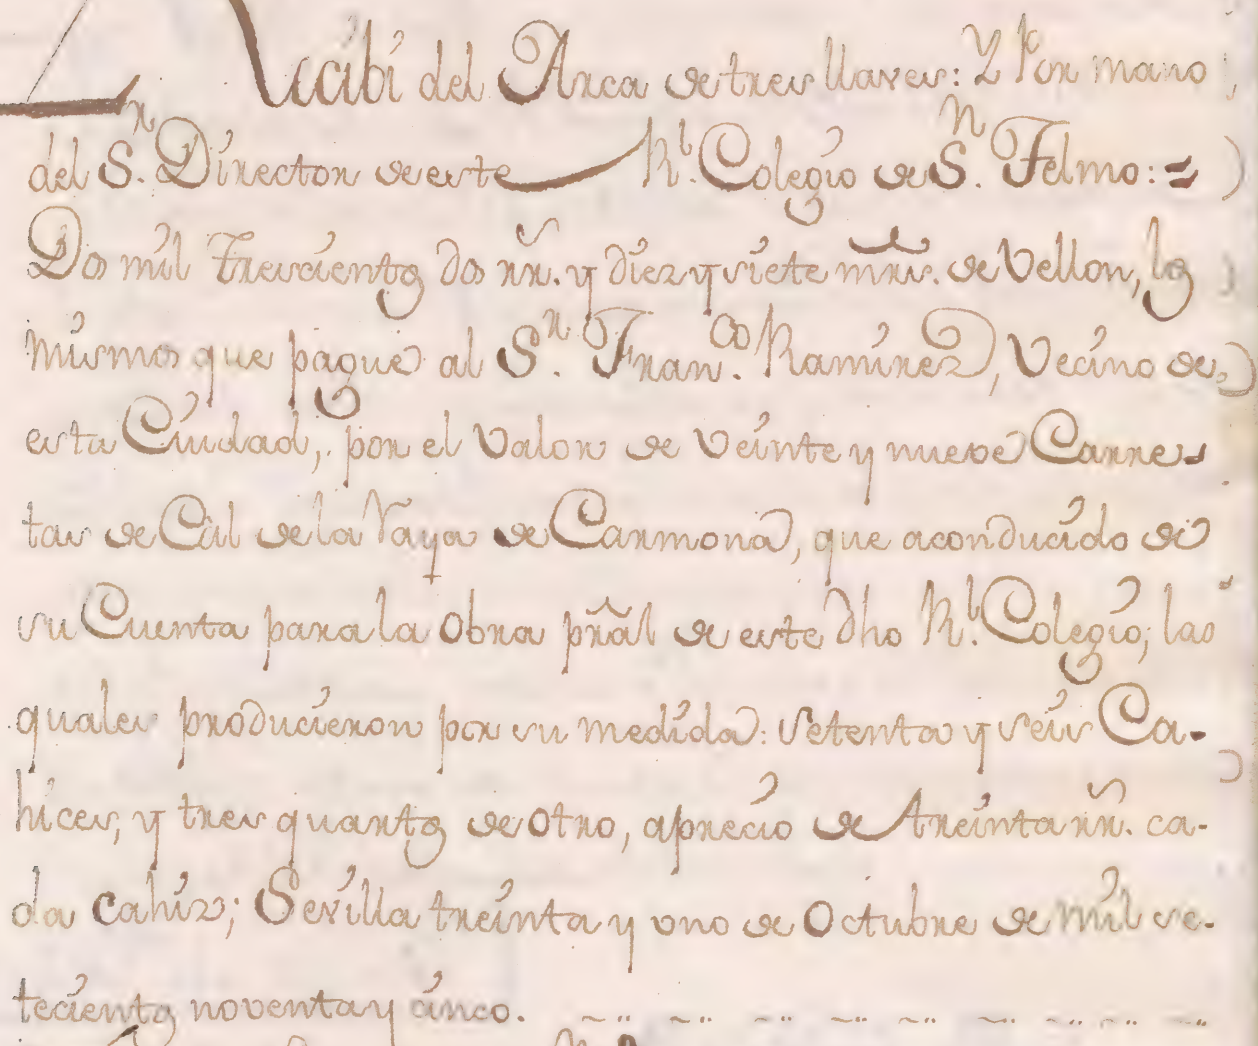 Recibi del Arca de tres llaves: Y Por mano
del S.r Director de este R.l Colegio de S.n Telmo:=
Dos mil Trescientos dos rr.s y diez y siete mrs. de Vellon, los
mismos que pagué al S.r Fran.co Ramirez, Vecino de
esta Ciudad, por el Valor de Veinte y nueve Carre=
tas de Cal de la Vaya de Carmona, que aconducido de
su Cuenta para la Obra prãl de este dho R.l Colegio; las
quales produxeron por su medida: setenta y seis Ca-
hices, y tres quartos de otro, aprecio de treinta rr.s ca-
da cahiz; Sevilla treinta y uno de Octubre de mil se-
tecientos noventa y cinco.